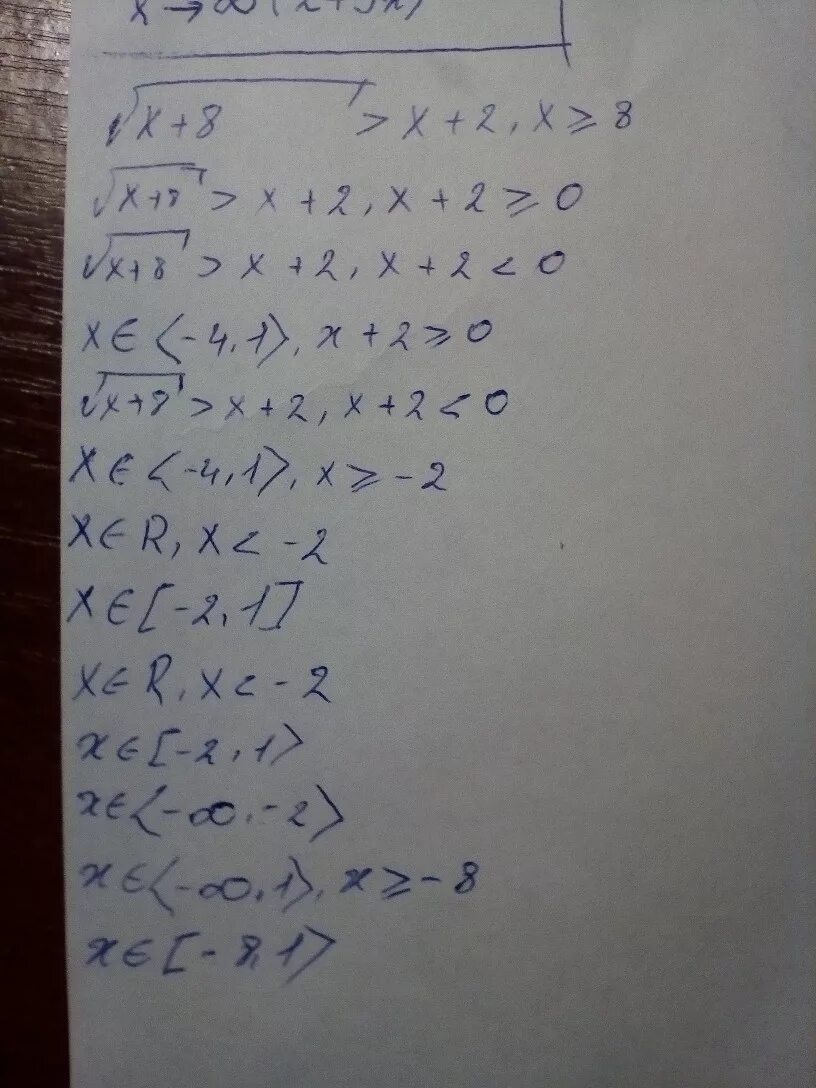 x → ∞ (2+3x)
√x+8 > x + 2, x ≥ 8
√x+8 > x + 2, x + 2 ≥ 0
√x+8 > x + 2, x + 2 < 0
x ∈ ⟨-4, 1⟩, x + 2 ≥ 0
√x+8 > x + 2, x + 2 < 0
x ∈ ⟨-4, 1⟩, x ≥ -2
x ∈ R, x < -2
x ∈ [-2, 1]
x ∈ R, x < -2
x ∈ [-2, 1⟩
x ∈ ⟨-∞, -2⟩
x ∈ ⟨-∞, 1⟩, x ≥ -8
x ∈ [-8, 1⟩